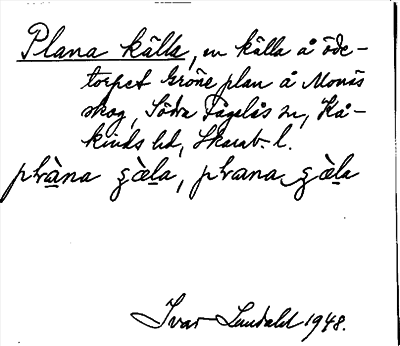 Plana källa, en källa å öde-
torpet Gröne plan å Monäs
skog, Södra Fågelås sn, Kå-
kinds hd, Skarab. l.
plràna gæ̀la, plrana gæ̀la
Ivar Lundahl 1948.